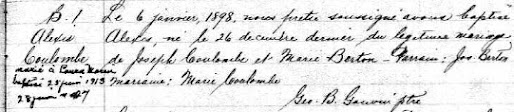 B. 1 Le 6 janvier, 1898, nous prêtre soussigné avons baptisé
Alexis Alexis né le 26 décembre dernier du légitime mariage
Coulombe de Joseph Coulombe et Marie Berton - Parrain: Jos. Berton
marié à
28 juin 1913 Marraine: Marie Coulombe
28 juin
Geo. B. Gauvin ptre